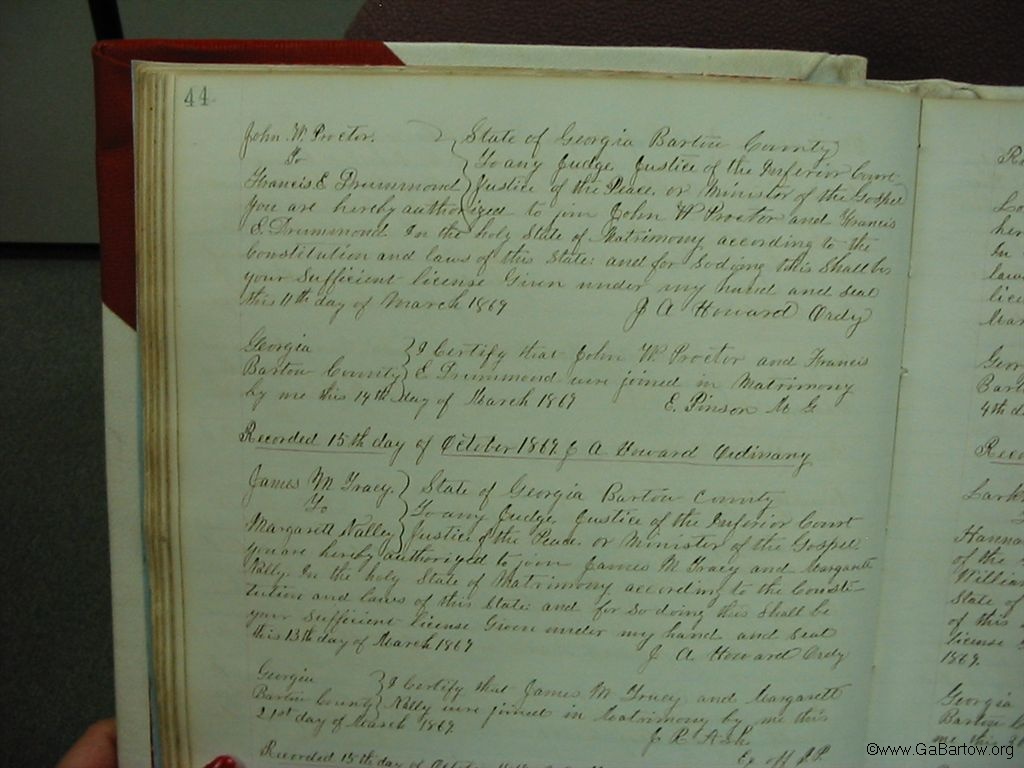 44
John W. Proctor. State of Georgia Bartow County
To To any Judge, Justice of the Inferior Court
Francis E Drummond Justice of the Peace, or Minister of the Gospel
You are hereby authorized to join John W Proctor and Francis
E. Drummond In the holy State of Matrimony according to the
Constitution and laws of this State: and for So doing this Shall be
your Sufficient license Given under my hand and seal
this 11th day of March 1869 J A Howard Ordy
Georgia I Certify that John W Proctor and Francis
Bartow County E Drummond were joined in Matrimony
by me this 14th day of March 1869 E. Pinson M G
Recorded 15th day of October 1869. J A Howard Ordinary
James M Tracy. State of Georgia Bartow County
To To any Judge, Justice of the Inferior Court
Margarett Nalley Justice of the Peace. or Minister of the Gospel.
you are hereby authorized to join James M Tracy and Margarett
Nally. In the holy State of Matrimony according to the Consti-
tution and laws of this State: and for So doing this Shall be
your Sufficient License Given under my hand and Seal
this 13th day of March 1869 J. A. Howard Ordy
Georgia I Certify that James M. Tracy and Margarett
Bartow County Nally were joined in Matrimony by me this
21st day of March 1869. J R Ash
Recorded 15th day of October Ex off J.P.
Hanna
of the
State of
of this
License
1869.
Georgia
Bartow
me this
©www.GaBartow.org